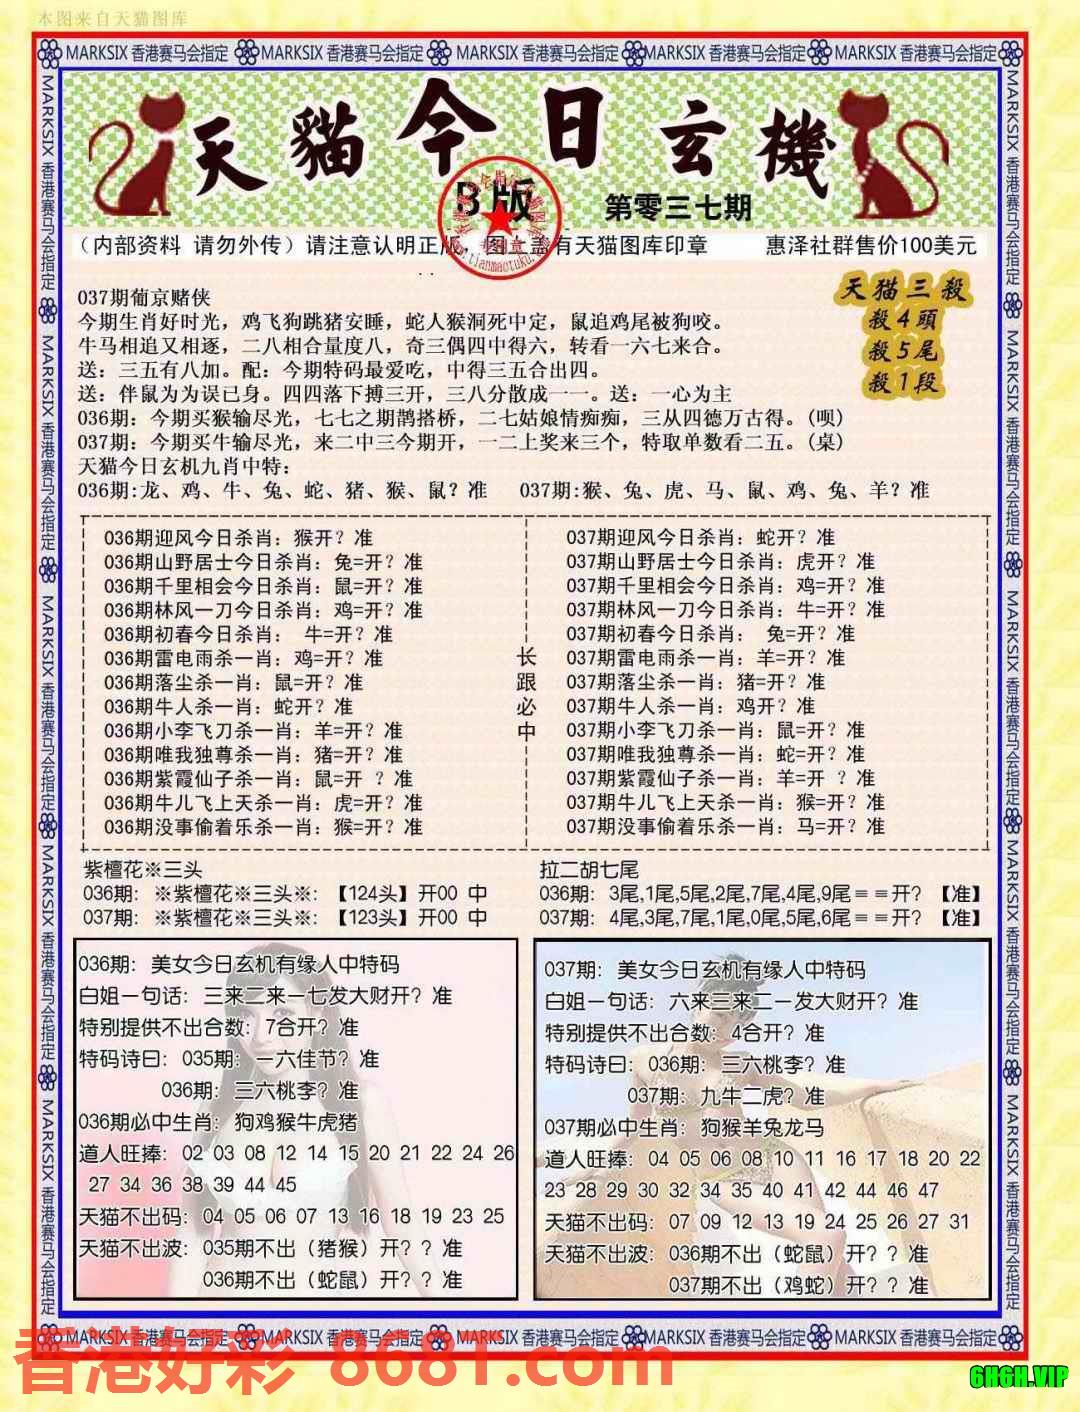 本图来自天猫图库
MARKSIX 香港赛马会指定 MARKSIX 香港赛马会指定 MARKSIX 香港赛马会指定 MARKSIX 香港赛马会指定 MARKSIX 香港赛马会指定
天貓今日玄機
B版
第零三七期
（内部资料 请勿外传）请注意认明正版，图上盖有天猫图库印章 惠泽社群售价100美元
天猫三殺
殺4頭
殺5尾
殺1段
037期葡京赌侠
今期生肖好时光，鸡飞狗跳猪安睡，蛇人猴洞死中定，鼠追鸡尾被狗咬。
牛马相追又相逐，二八相合量度八，奇三偶四中得六，转看一六七来合。
送：三五有八加。配：今期特码最爱吃，中得三五合出四。
送：伴鼠为为误已身。四四落下搏三开，三八分散成一一。送：一心为主
036期：今期买猴输尽光，七七之期鹊搭桥，二七姑娘情痴痴，三从四德万古得。(呗)
037期：今期买牛输尽光，来二中三今期开，一二上奖来三个，特取单数看二五。(桌)
天猫今日玄机九肖中特：
036期:龙、鸡、牛、兔、蛇、猪、猴、鼠？准 037期:猴、兔、虎、马、鼠、鸡、兔、羊？准
036期迎风今日杀肖：猴开？准
036期山野居士今日杀肖：兔=开？准
036期千里相会今日杀肖：鼠=开？准
036期林风一刀今日杀肖：鸡=开？准
036期初春今日杀肖： 牛=开？准
036期雷电雨杀一肖：鸡=开？准
036期落尘杀一肖：鼠=开？准
036期牛人杀一肖：蛇开？准
036期小李飞刀杀一肖：羊=开？准
036期唯我独尊杀一肖：猪=开？准
036期紫霞仙子杀一肖：鼠=开 ？准
036期牛儿飞上天杀一肖：虎=开？准
036期没事偷着乐杀一肖：猴=开？准
长跟必中
037期迎风今日杀肖：蛇开？准
037期山野居士今日杀肖：虎开？准
037期千里相会今日杀肖：鸡=开？准
037期林风一刀今日杀肖：牛=开？准
037期初春今日杀肖： 兔=开？准
037期雷电雨杀一肖：羊=开？准
037期落尘杀一肖：猪=开？准
037期牛人杀一肖：鸡开？准
037期小李飞刀杀一肖：鼠=开？准
037期唯我独尊杀一肖：蛇=开？准
037期紫霞仙子杀一肖：羊=开 ？准
037期牛儿飞上天杀一肖：猴=开？准
037期没事偷着乐杀一肖：马=开？准
紫檀花※三头
036期：※紫檀花※三头※:【124头】开00 中
037期：※紫檀花※三头※:【123头】开00 中
拉二胡七尾
036期：3尾,1尾,5尾,2尾,7尾,4尾,9尾＝＝开？【准】
037期：4尾,3尾,7尾,1尾,0尾,5尾,6尾＝＝开？【准】
036期：美女今日玄机有缘人中特码
白姐一句话：三来二来一七发大财开？准
特别提供不出合数：7合开？准
特码诗曰：035期：一六佳节？准
036期：三六桃李？准
036期必中生肖：狗鸡猴牛虎猪
道人旺捧：02 03 08 12 14 15 20 21 22 24 26
27 34 36 38 39 44 45
天猫不出码：04 05 06 07 13 16 18 19 23 25
天猫不出波：035期不出（猪猴）开？？准
036期不出（蛇鼠）开？？准
037期：美女今日玄机有缘人中特码
白姐一句话：六来三来二一发大财开？准
特别提供不出合数：4合开？准
特码诗曰：036期：三六桃李？准
037期：九牛二虎？准
037期必中生肖：狗猴羊兔龙马
道人旺捧：04 05 06 08 10 11 16 17 18 20 22
23 28 29 30 32 34 35 40 41 42 44 46 47
天猫不出码：07 09 12 13 19 24 25 26 27 31
天猫不出波：036期不出（蛇鼠）开？？准
037期不出（鸡蛇）开？？准
MARKSIX 香港赛马会指定 MARKSIX 香港赛马会指定 MARKSIX 香港赛马会指定 MARKSIX 香港赛马会指定 MARKSIX 香港赛马会指定
香港好彩 8681.com
6HGH.VIP